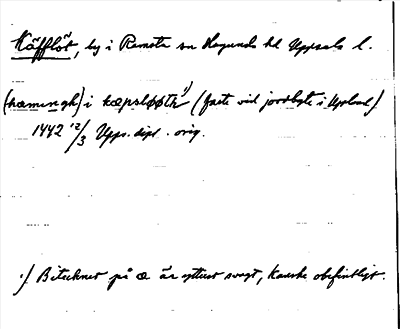 Käfflöt, by i Ramsta sn Hagunda hd Uppsala l.
(hæmingh) i kæpsløøth 1) (faste vid jordbyte i Upland)
1442 12/3 Upps. dipl. orig.
1) Bitecknet på æ är ytterst svagt, kanske obefintligt.